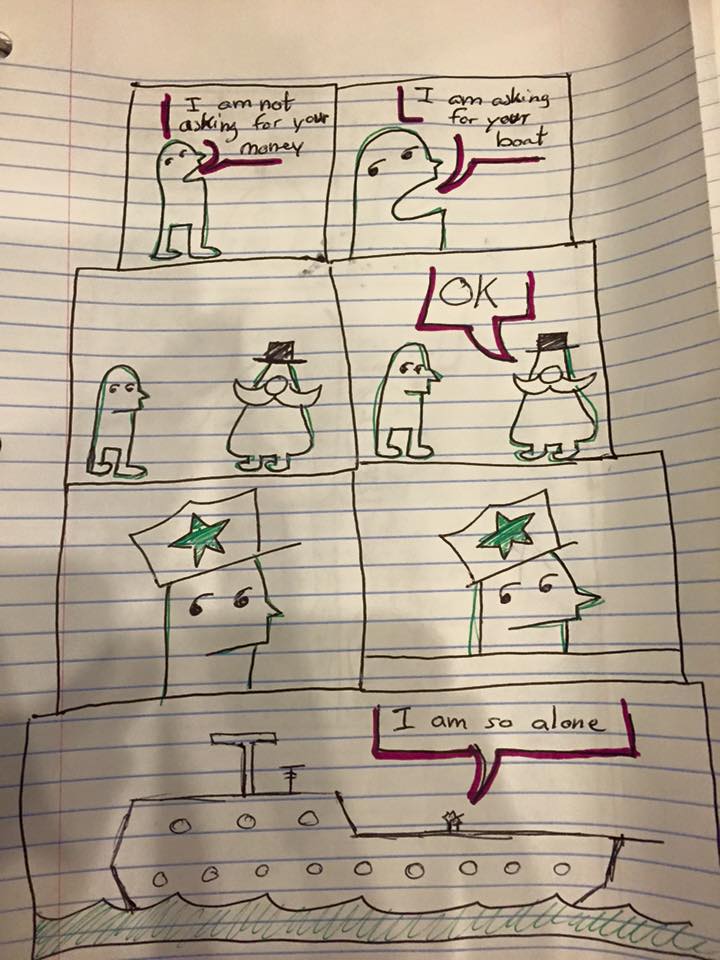 I am not
asking for your
money
I am asking
for your
boat
OK
I am so alone